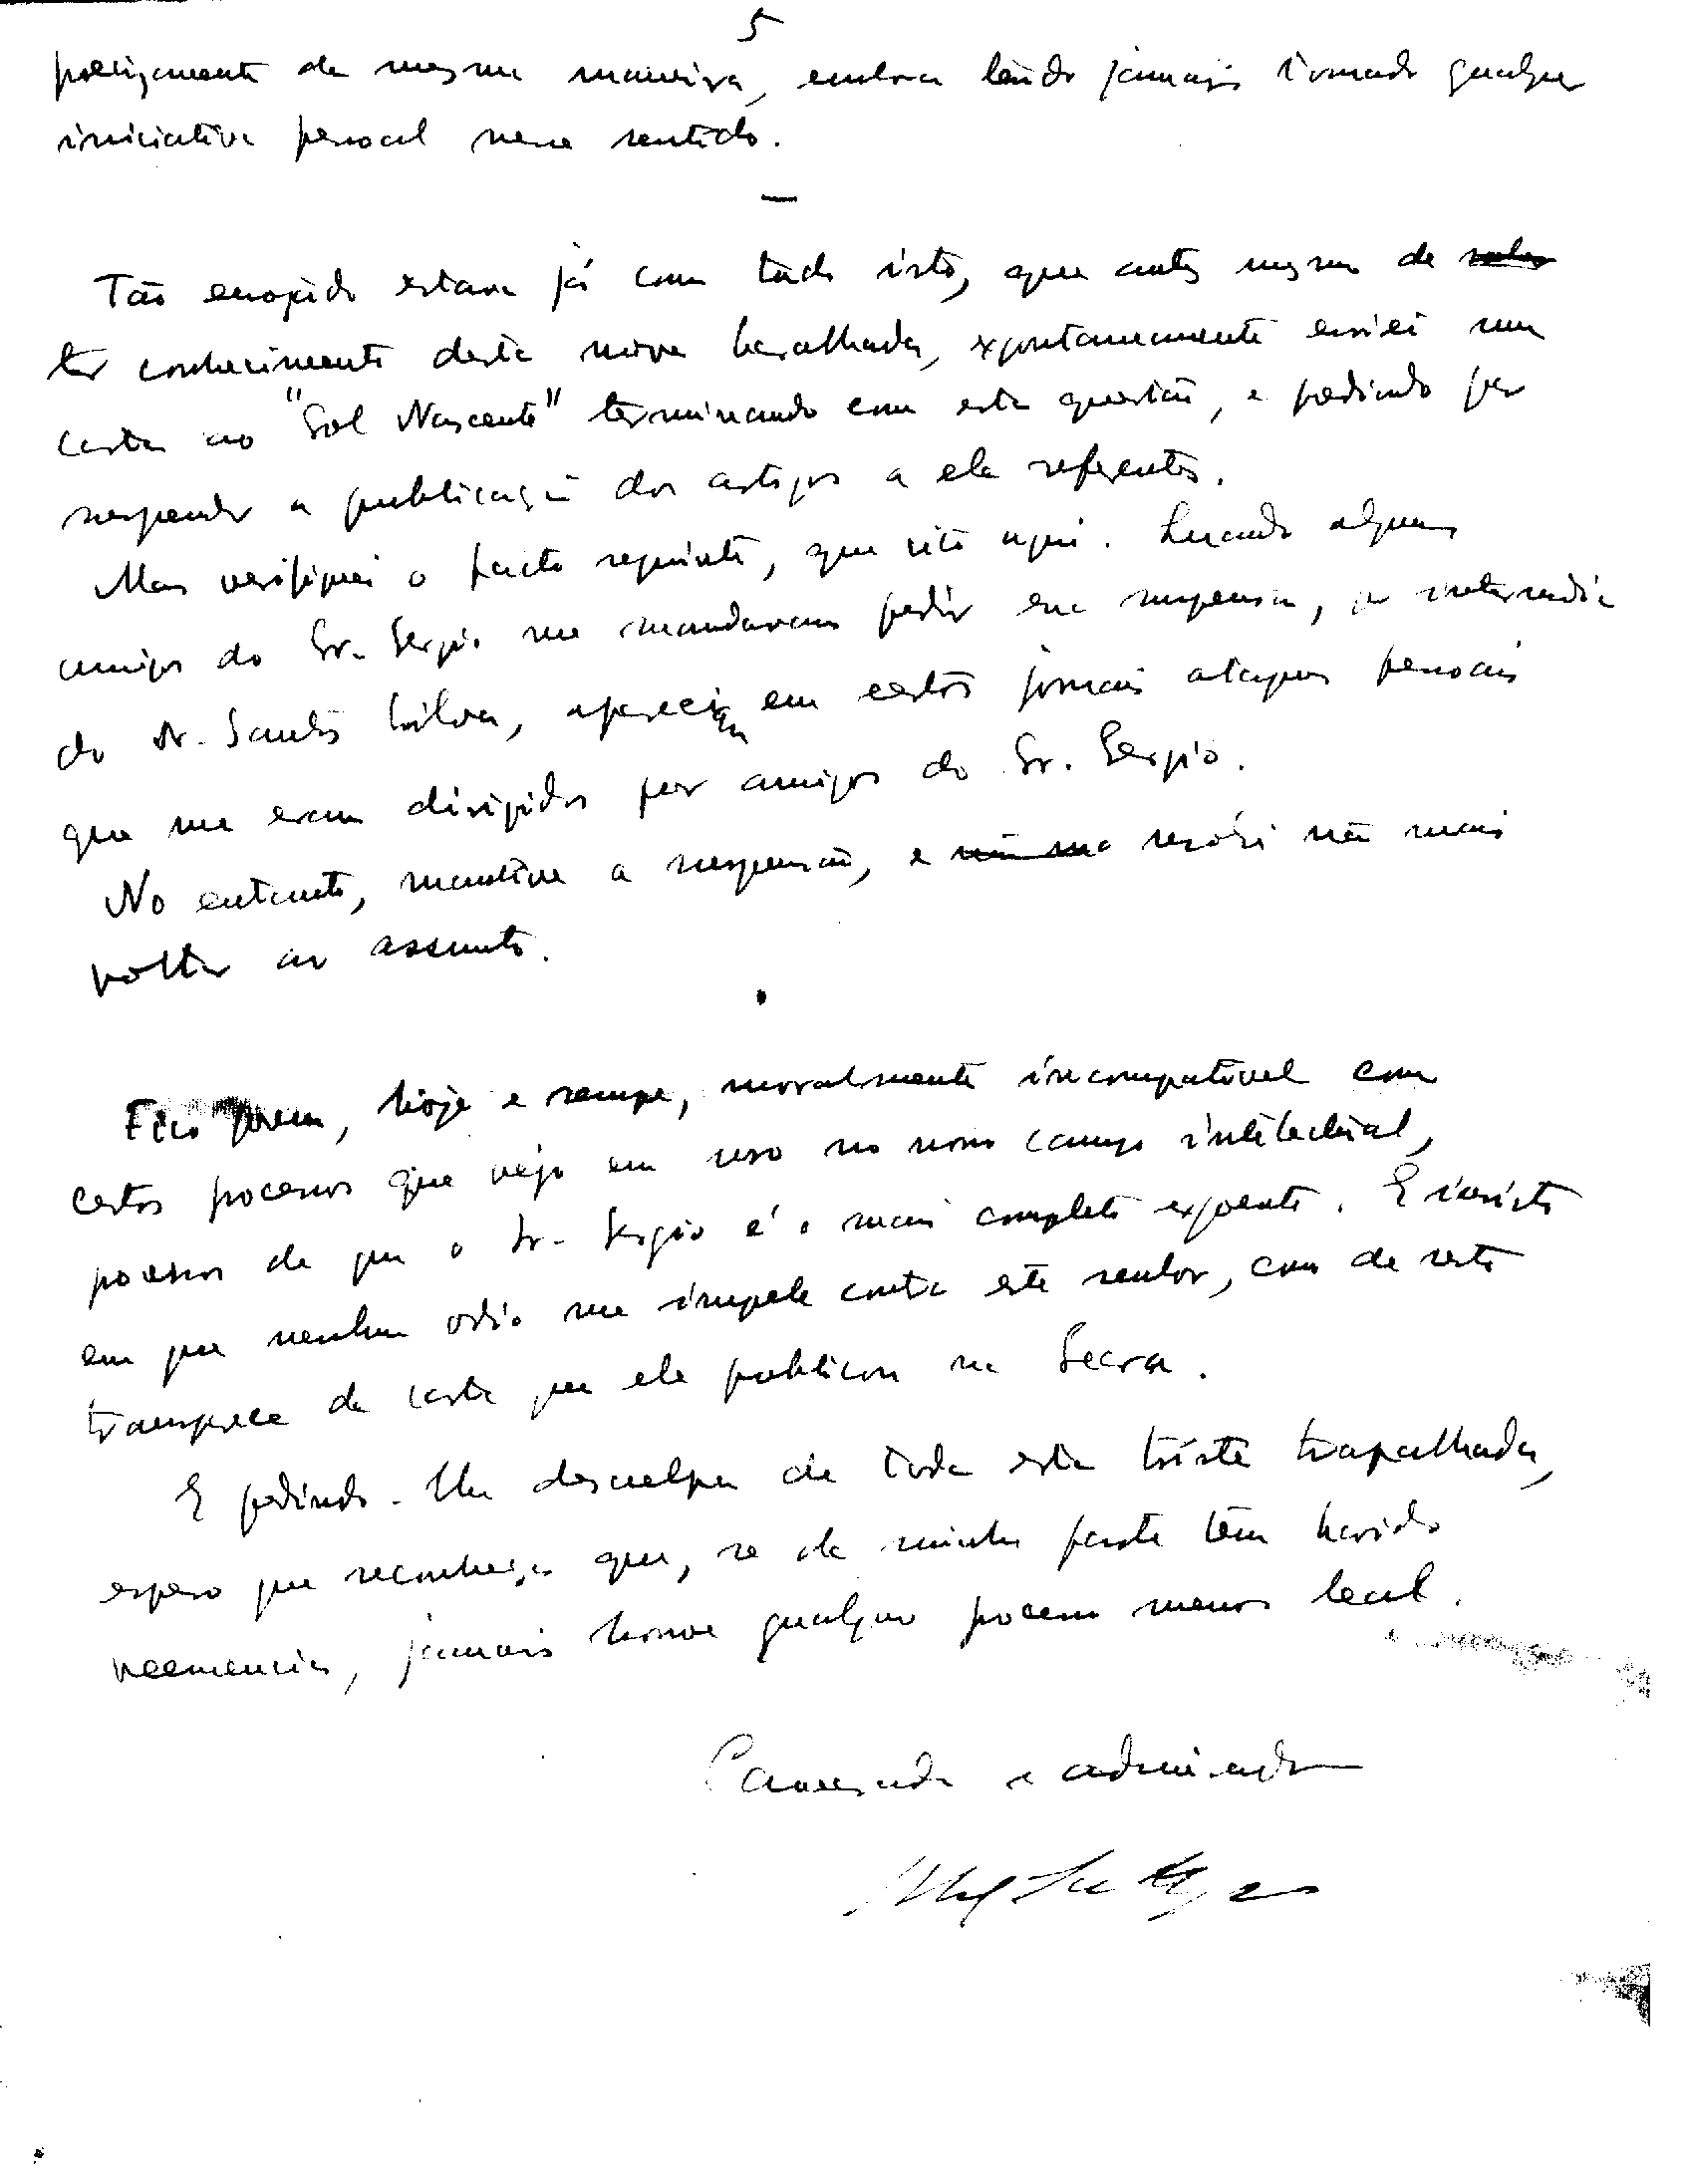 5
precisamente da mesma maneira, embora tendo jamais tomado qualquer
iniciativa pessoal nesse sentido.
—
Tão enojado estava já com tudo isto, que antes mesmo de
ter conhecimento desta nova baralhada, expontaneamente enviei uma
carta ao "Sol Nascente" terminando com esta questão, e pedindo para
suspender a publicação dos artigos a ela referentes.
Mas verifiquei o facto seguinte, que cito aqui. Quando alguns
amigos do Sr. Sergio me mandavam pedir essa suspensão, por intermédio
do Dr. Santos Silva, apareciam em certos jornais ataques pessoais
que me eram dirigidos por amigos do Sr. Sergio.
No entanto, mantive a suspensão, e resolvi não mais
voltar ao assunto.
Fico porem, hoje e sempre, moralmente incompativel com
certos processos que vejo em uso no nosso campo intelectual,
processos de que o Sr. Sergio é o mais completo expoente. E insisto
em que nenhum odio me impele contra este senhor, como de resto
transparece da carta que ele publicou na Seara.
E pedindo-lhe desculpa de toda esta triste trapalhada,
espero que reconheça que, se da minha parte tem havido
veemencia, jamais houve qualquer processo menos leal.
Camarada e admirador